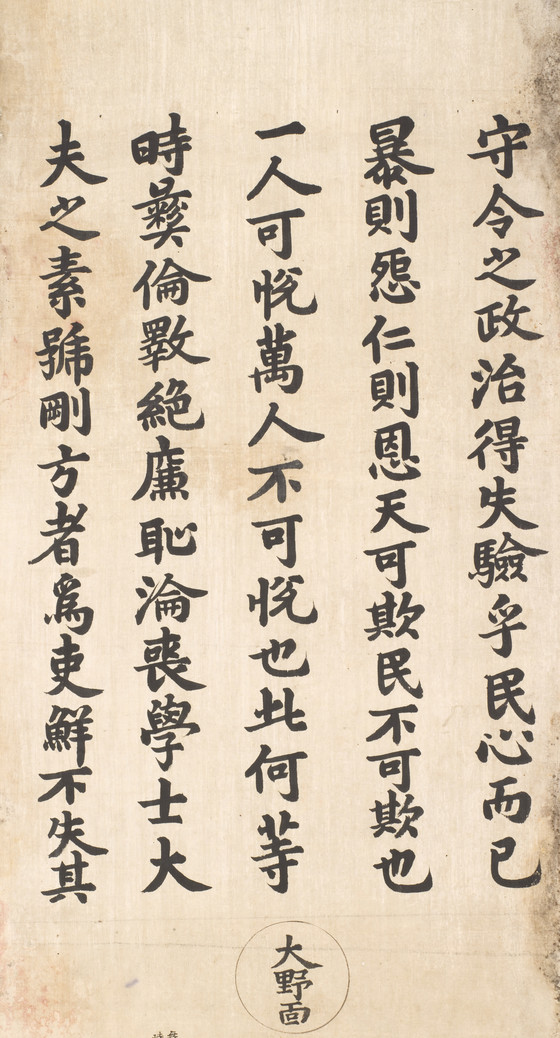 守令之政治得失驗乎民心而已
暴則怨仁則恩天可欺民不可欺也
一人可悅萬人不可悅也此何等
時彛倫斁絶廉恥淪喪學士大
夫之素號剛方者爲吏鮮不失其
大野面